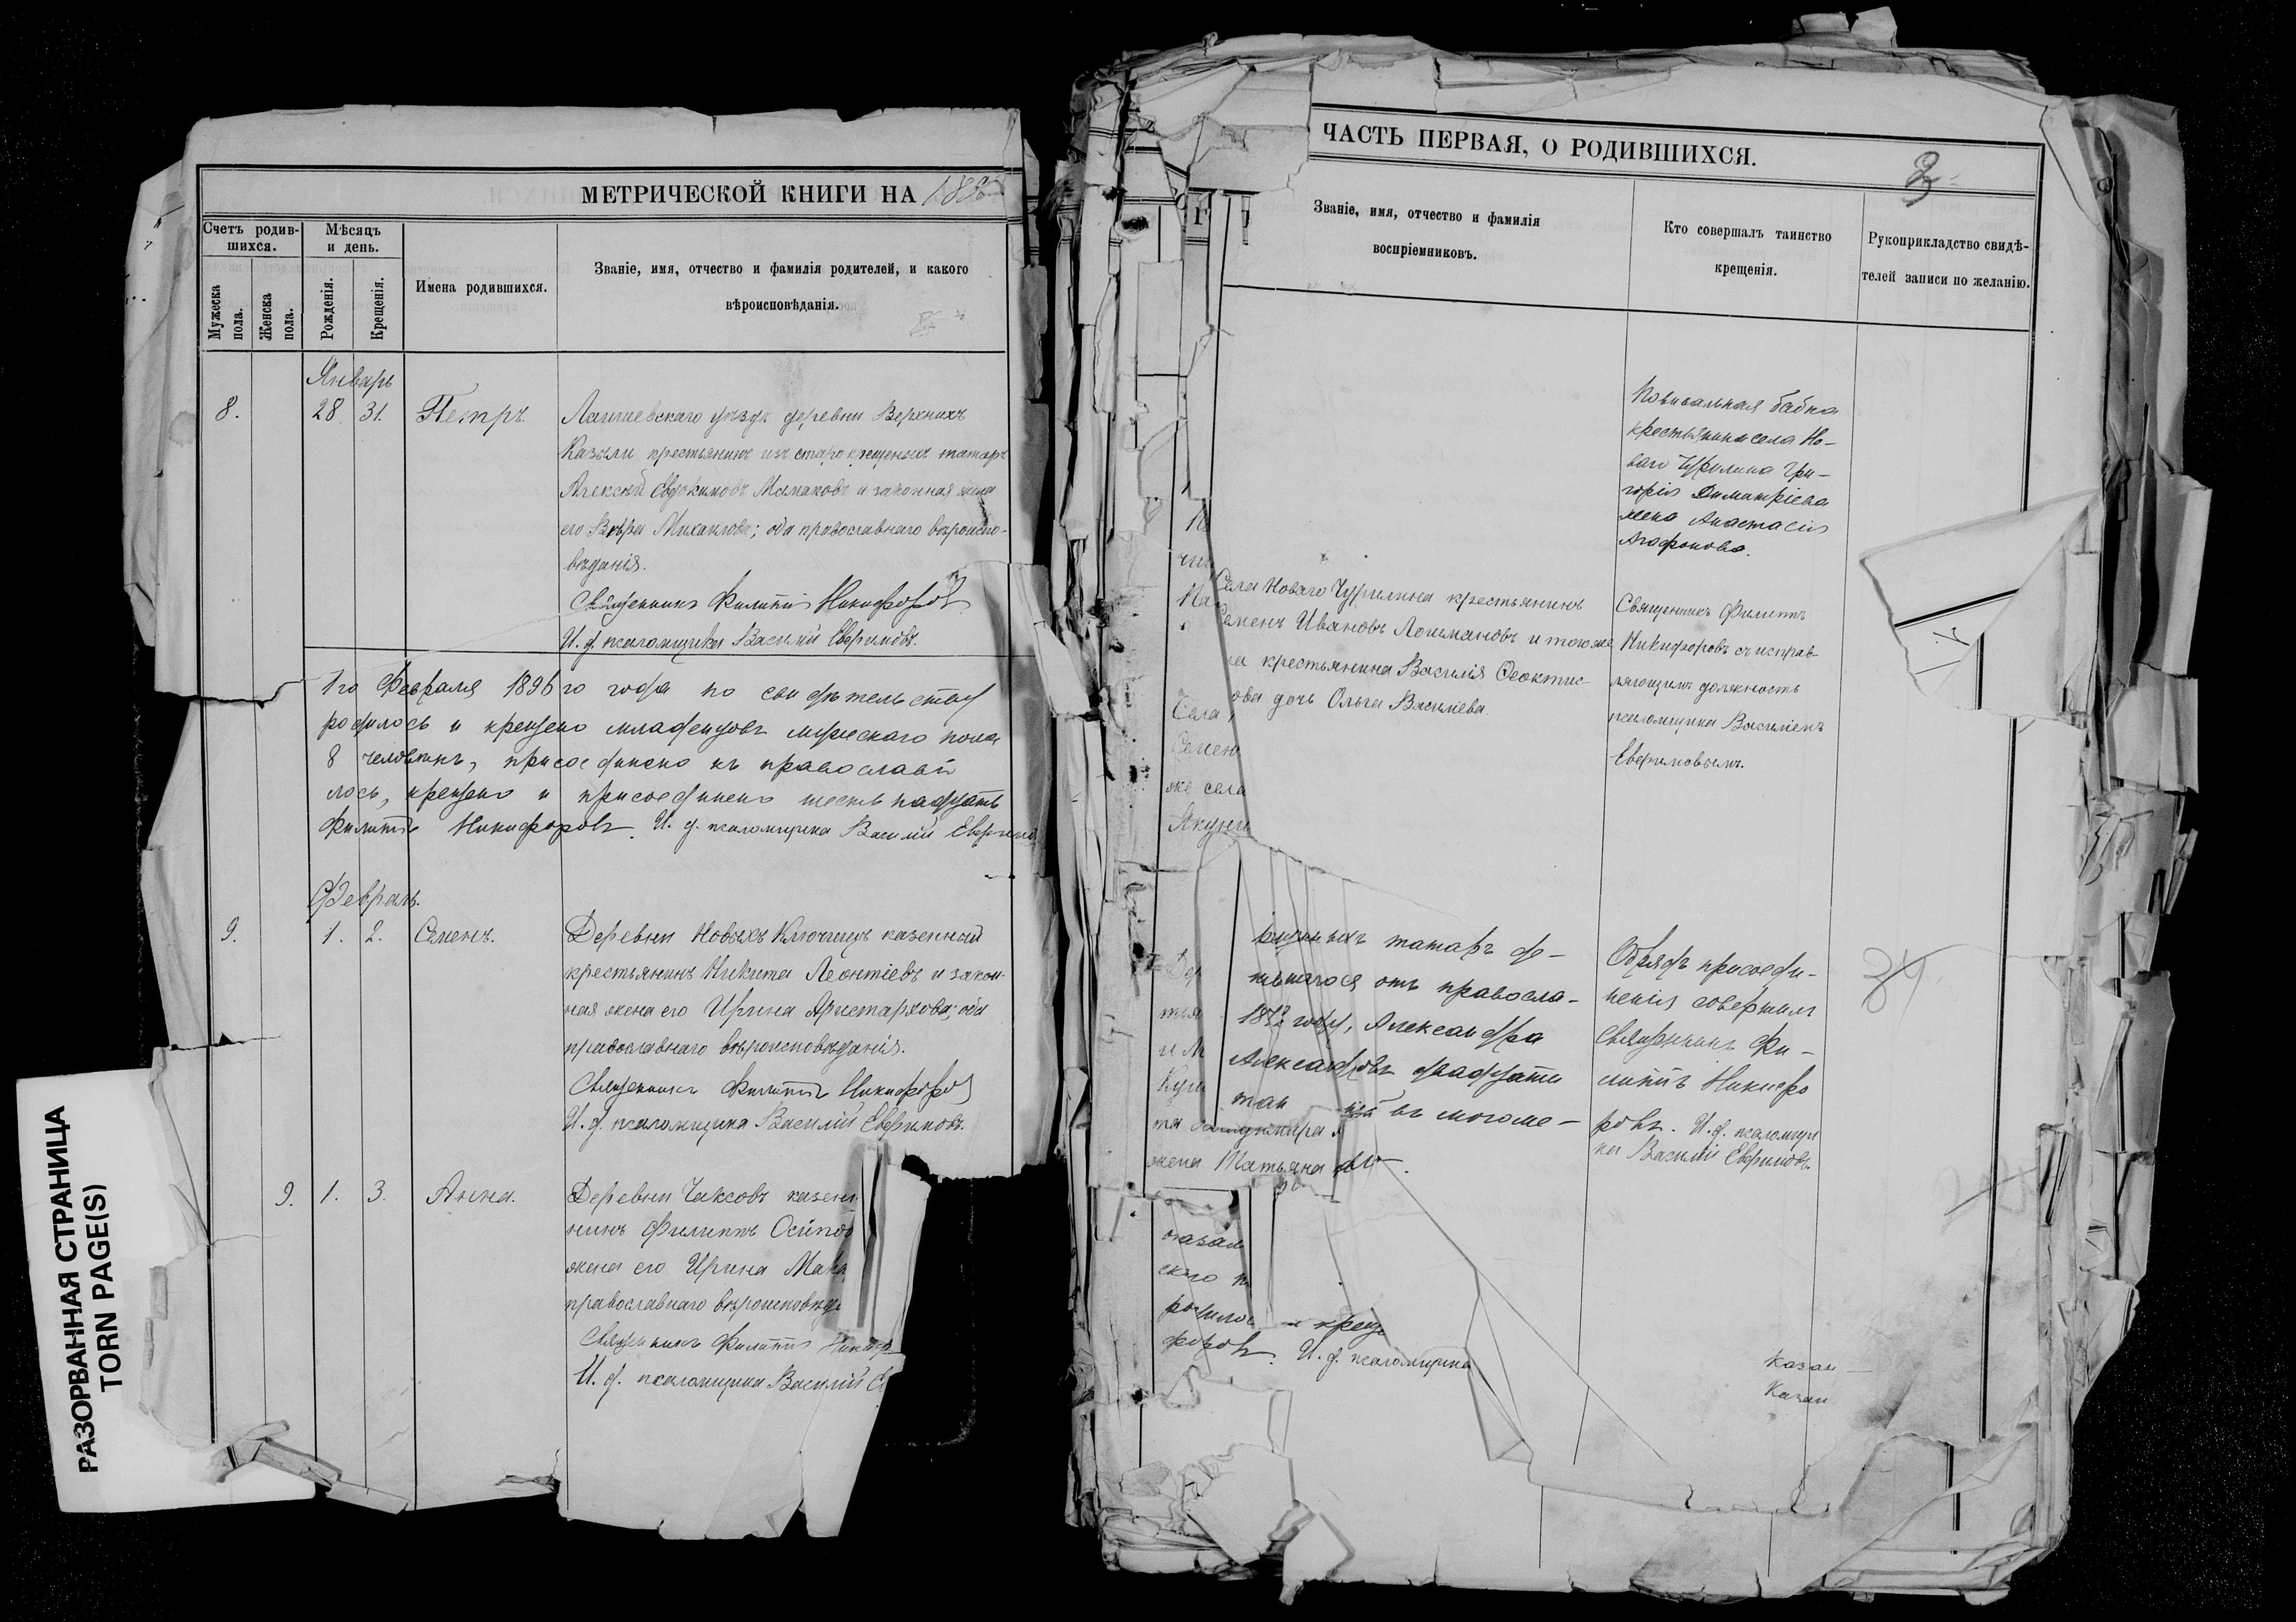 МЕТРИЧЕСКОЙ КНИГИ НА 1896
Счетъ родив-
шихся.
Мѣсяцъ
и день.
Мужеска
пола.
Женска
пола.
Рожденія.
Крещенія.
Имена родившихся.
Званіе, имя, отчество и фамилія родителей, и какого
вѣроисповѣданія.
Январь
8. 28 31. Петръ.
Лаишевскаго уѣзда деревни Верхнихъ
крестьянинъ изъ старокрещеныхъ татаръ
Алексѣй Евдокимовъ и законная жена
его Вѣра Михаилова; оба православнаго вѣроиспо-
вѣданія.
Священникъ Филиппъ Никифоровъ
И. д. псаломщика Василій Евфимовъ.
1го Февраля 1896го года по свидѣтельству
родилось и крещено младенцовъ мужескаго пола
8 человѣкъ, присоединено къ православі
лось, крещено и присоединено шестнадцать
Филиппъ Никифоровъ. И. д. псаломщика Василій Евфимов
Февраль.
9. 1. 2. Семенъ.
Деревни Новыхъ Ключищъ казенный
крестьянинъ Никита Леонтіевъ и закон-
ная жена его Ирина Аристархова; оба
православнаго вѣроисповѣданія.
Священникъ Филиппъ Никифоров
И. д. псаломщика Василій Евфимовъ.
9. 1. 3. Анна.
Деревни Чаксовъ казенн
нинъ Филиппъ Осипов
жена его Ирина Мака
православнаго вѣроисповѣд
Священникъ Филиппъ Никиф
И. д. псаломщика Василій Е
РАЗОРВАННАЯ СТРАНИЦА
TORN PAGE(S)
ЧАСТЬ ПЕРВАЯ, О РОДИВШИХСЯ.
3
Званіе, имя, отчество и фамилія
воспріемниковъ.
Кто совершалъ таинство
крещенія.
Рукоприкладство свидѣ-
телей записи по желанію.
Повивальная бабка
крестьянина села Но-
ваго Чурилина Гри-
горія Димитріева
жена Анастасія
Агафонова.
Села Новаго Чурилина крестьянинъ
Семенъ Ивановъ Лошмановъ и того же
ла крестьянина Василія Ѳеоктис-
ова дочь Ольга Василіева.
Священникъ Филиппъ
Никифоровъ съ исправ-
ляющимъ должность
псаломщика Василіемъ
Евфимовымъ.
Села
Семен
же села
Акун
рещеныхъ татаръ
отъ правосла-
года, Александра
Александровъ двадцати
въ
жена Татьяна
Обрядъ присоеди-
ненія совершилъ
Священникъ Фи-
липпъ Никифо
ровъ. И. д. псаломщи
ка Василій Евфимовъ.
34
оказал
скаго п
родилос и крещ
форовъ. И. д. псаломщика
Казан
Казан